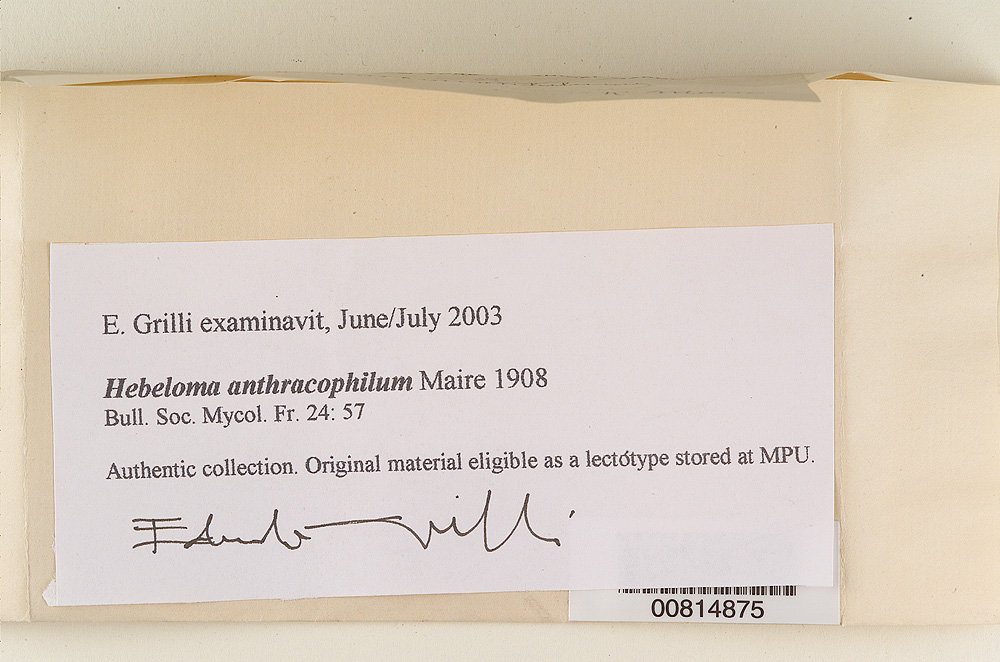 E. Grilli examinavit, June/July 2003
Hebeloma anthracophilum Maire 1908
Bull. Soc. Mycol. Fr. 24: 57
Authentic collection. Original material eligible as a lectotype stored at MPU.
00814875